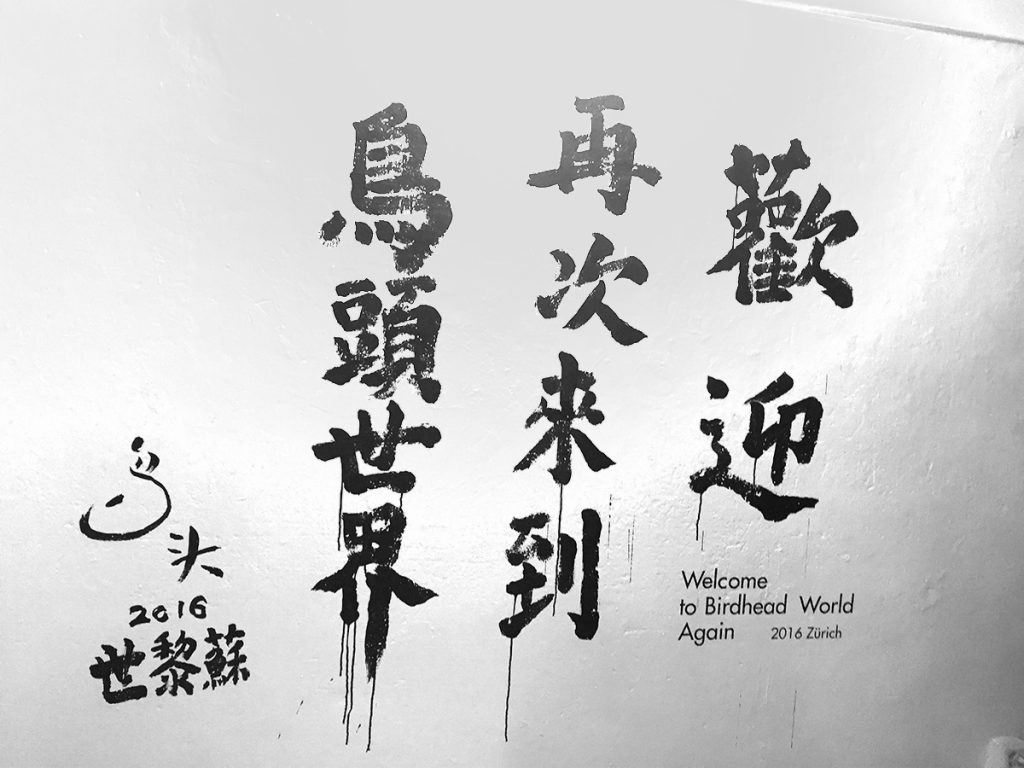 歡迎
再次來到
鳥頭世界
Welcome
to Birdhead World
Again 2016 Zürich
鸟头
2016
蘇黎世